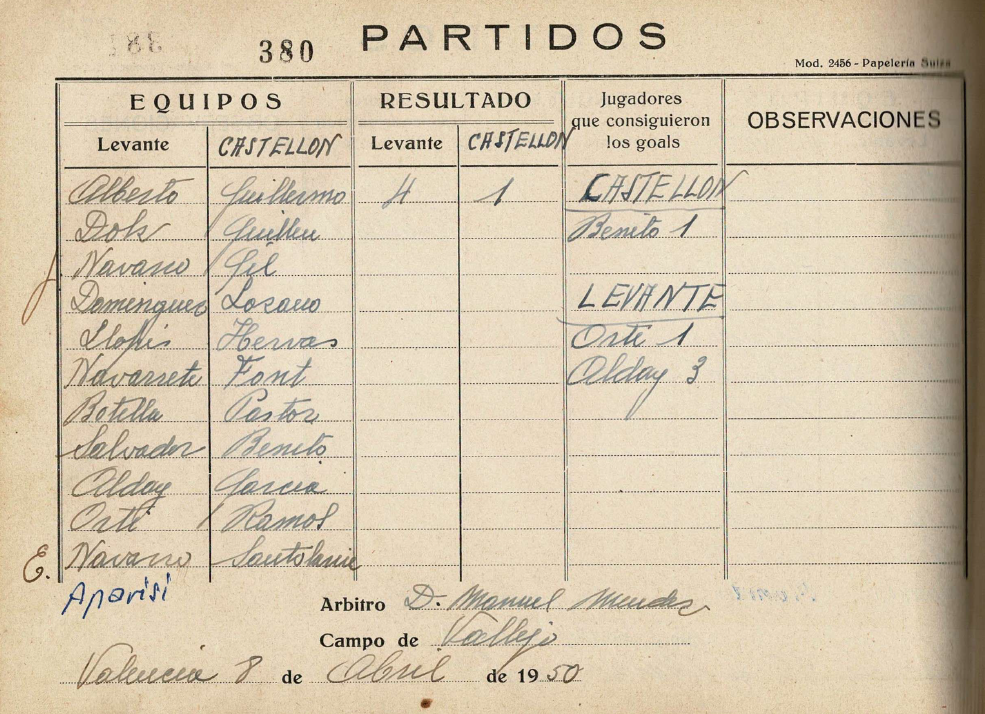 380 PARTIDOS
Mod. 2456 - Papelería Suisa
EQUIPOS RESULTADO Jugadores que consiguieron los goals OBSERVACIONES
Levante CASTELLON Levante CASTELLON
Alberto Guillermo 4 1 CASTELLON
Dolz Guillen Benito 1
J Navarro Gil
Dominguez Lozano LEVANTE
Llopis Hervas Orti 1
Navarrete Font Alday 3
Botella Pastor
Salvador Benito
Alday Garcia
Orti Ramos
E. Navarro
Aparisi
Arbitro D. Manuel Mendez
Campo de Vallejo
Valencia 8 de Abril de 1950